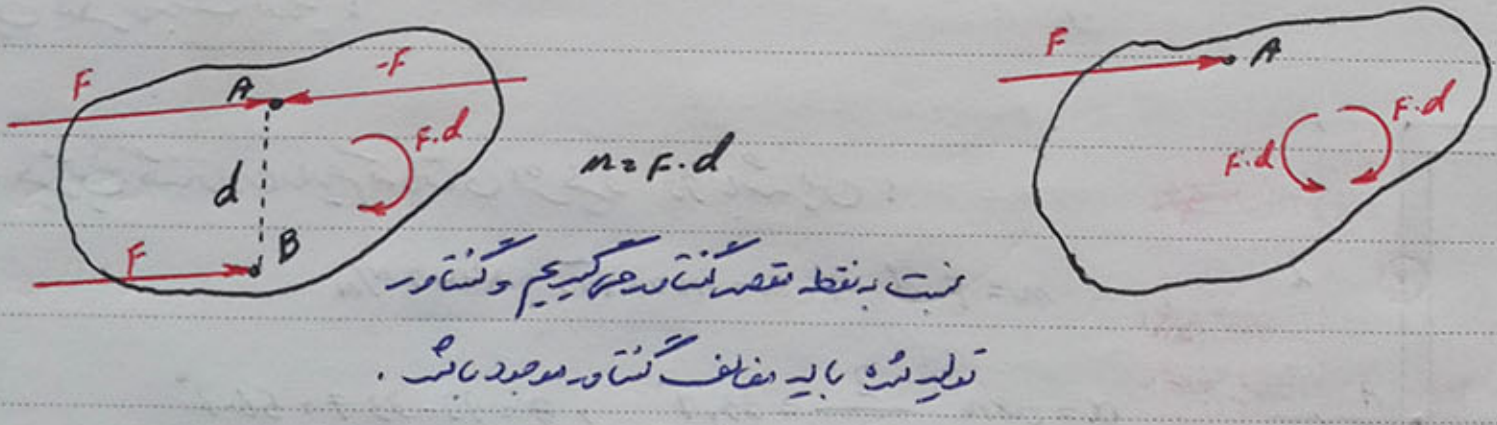 F
A
-F
F.d
d
F
B
m = F.d
F
A
F.d
F.d
نسبت به نقطه مقصد گشتاور می گیریم و گشتاور
تولید شده باید مخالف گشتاور موجود باشد .